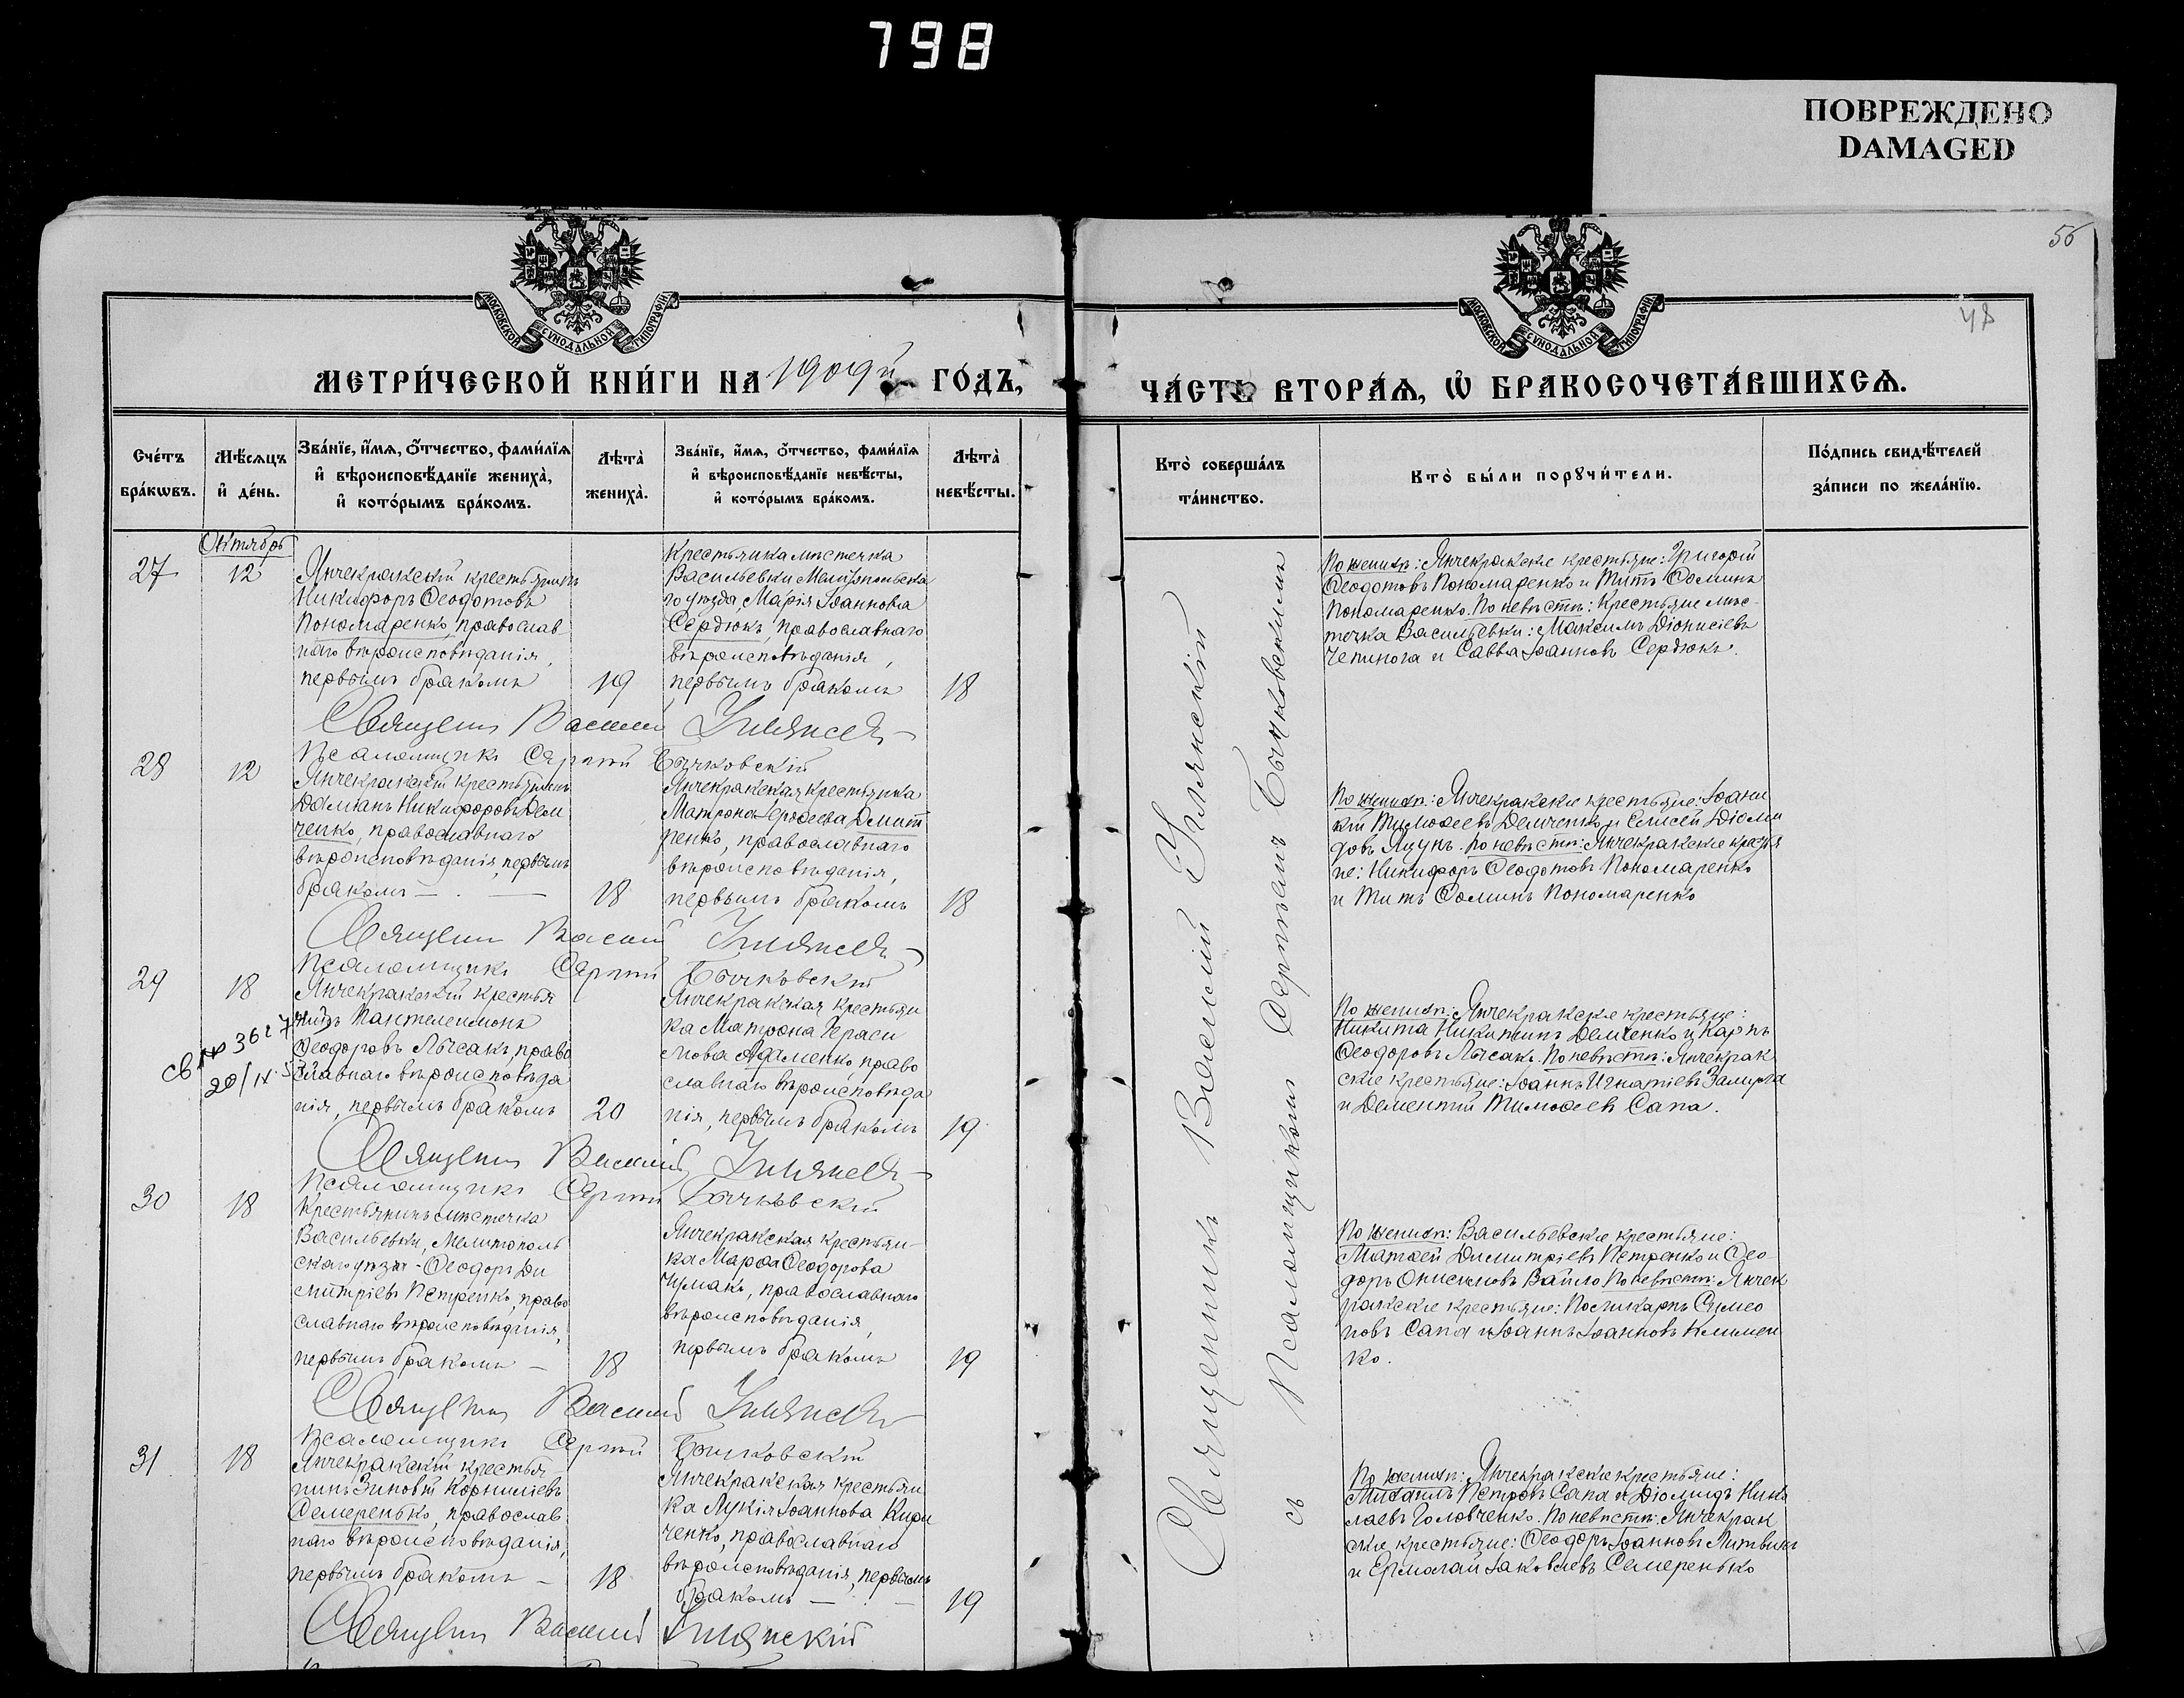 798
ПОВРЕЖДЕНО
DAMAGED
56
48
МОСКОВСКОЙ СѴНОДАЛЬНОЙ ТИПОГРАФІИ
МОСКОВСКОЙ СѴНОДАЛЬНОЙ ТИПОГРАФІИ
МЕТРИ́ЧЕСКОЙ КНИ́ГИ НА 1909й ГО́ДЪ,
ЧА́СТЬ ВТОРА́Ѧ, Ѡ҆ БРАКОСОЧЕТА́ВШИХСѦ.
Сче́тъ бра́кѡвъ.
Мѣ́сѧцъ и҆ де́нь.
Зва́нїе, и҆́мѧ, ѻ҆́тчество, фами́лїѧ и҆ вѣроисповѣ́данїе жениха̀, и҆ кото́рымъ бра́комъ.
Лѣ́та̀ жениха̀.
Зва́нїе, и҆́мѧ, ѻ҆́тчество, фами́лїѧ и҆ вѣроисповѣ́данїе невѣ́сты, и҆ кото́рымъ бра́комъ.
Лѣ́та̀ невѣ́сты.
Кто̀ соверша́лъ та́инство.
Кто̀ бы́ли порꙋчи́тели.
По́дпись свидѣ́телей за́писи по жела́нїю.
Октябрь
27
12
Янчекракскій крестьянинъ
Никифоръ Ѳеодотовъ
Пономаренко, православ
наго вѣроисповѣданія,
первымъ бракомъ
19
Крестьянка мѣстечка
Васильевки Мелитопольска
го уѣзда, Марія Іоаннова
Сердюкъ, православнаго
вѣроисповѣданія,
первымъ бракомъ
18
По женихѣ: Янчекракскіе крестьяне: Григорій
Ѳеодотовъ Пономаренко и Титъ Ѳоминъ
Пономаренко. По невѣстѣ: Крестьяне мѣс-
течка Васильевки: Максимъ Діонисіевъ
Чепинога и Савва Іоанновъ Сердюкъ.
Священникъ Василій
Псаломщикъ Сергій Бычковскій
28
12
Янчекракскій крестьянинъ
Даміанъ Никифоровъ Дем
ченко, православнаго
вѣроисповѣданія, первымъ
бракомъ —
18
Янчекракская крестьянка
Матрона Дмит
ренко, православнаго
вѣроисповѣданія,
первымъ бракомъ
18
По женихѣ: Янчекракскіе крестьяне: Іоани
кій Тимоѳеевъ Демченко и Елисей Діоми
довъ Яцунъ. По невѣстѣ: Янчекракскіе крестья
не: Никифоръ Ѳеодотовъ Пономаренко
и Титъ Ѳоминъ Пономаренко
Священникъ Василій
Псаломщикъ Сергій Бычковскій
29
18
Янчекракскій крестья
нинъ Пантелеимонъ
Ѳеодоровъ Лысакъ, право
славнаго вѣроисповѣда
нія, первымъ бракомъ
20
Янчекракская крестьян
ка Матрона Гераси
мова Адаменко, право
славнаго вѣроисповѣда
нія, первымъ бракомъ
19
По женихѣ: Янчекракскіе крестьяне:
Никита Никитинъ Демченко и Карпъ
Ѳеодоровъ Лысакъ. По невѣстѣ: Янчекрак
скіе крестьяне: Іоаннъ Игнатіевъ
и Дементій Тимоѳеевъ Сапа.
Священникъ Василій
Псаломщикъ Сергій Бычковскій
30
18
Крестьянинъ мѣстечка
Васильевки, Мелитополь
скаго уѣзда - Ѳеодоръ Ди
митріевъ Петренко, право
славнаго вѣроисповѣданія,
первымъ бракомъ —
18
Янчекракская крестьян-
ка Марѳа Ѳеодорова
Чумакъ, православнаго
вѣроисповѣданія,
первымъ бракомъ
19
По женихѣ: Васильевскіе крестьяне:
Матѳей Димитріевъ Петренко и Ѳео
доръ Онисимовъ Вайло По невѣстѣ: Янчек
ракскіе крестьяне: Поликарпъ Симео
новъ Сапа и Іоаннъ Іоанновъ Климен
ко.
Священникъ Василій
Псаломщикъ Сергій Бычковскій
31
18
Янчекракскій крестья
нинъ Зиновій Корниліевъ
Семеренько, православ
наго вѣроисповѣданія,
первымъ бракомъ —
18
Янчекракская крестьян
ка Лукія Іоаннова Кири
ченко, православнаго
вѣроисповѣданія, первымъ
бракомъ —
19
По женихѣ: Янчекракскіе крестьяне:
Михаилъ Петровъ Сапа и Діомидъ Нико
лаевъ Головченко. По невѣстѣ: Янчекрак
скіе крестьяне: Ѳеодоръ Іоанновъ Литвинъ
и Ермолай Іаковлевъ Семеренько
Священникъ Василій
Священникъ Василій
съ Псаломщикомъ Сергіемъ Бычковскимъ